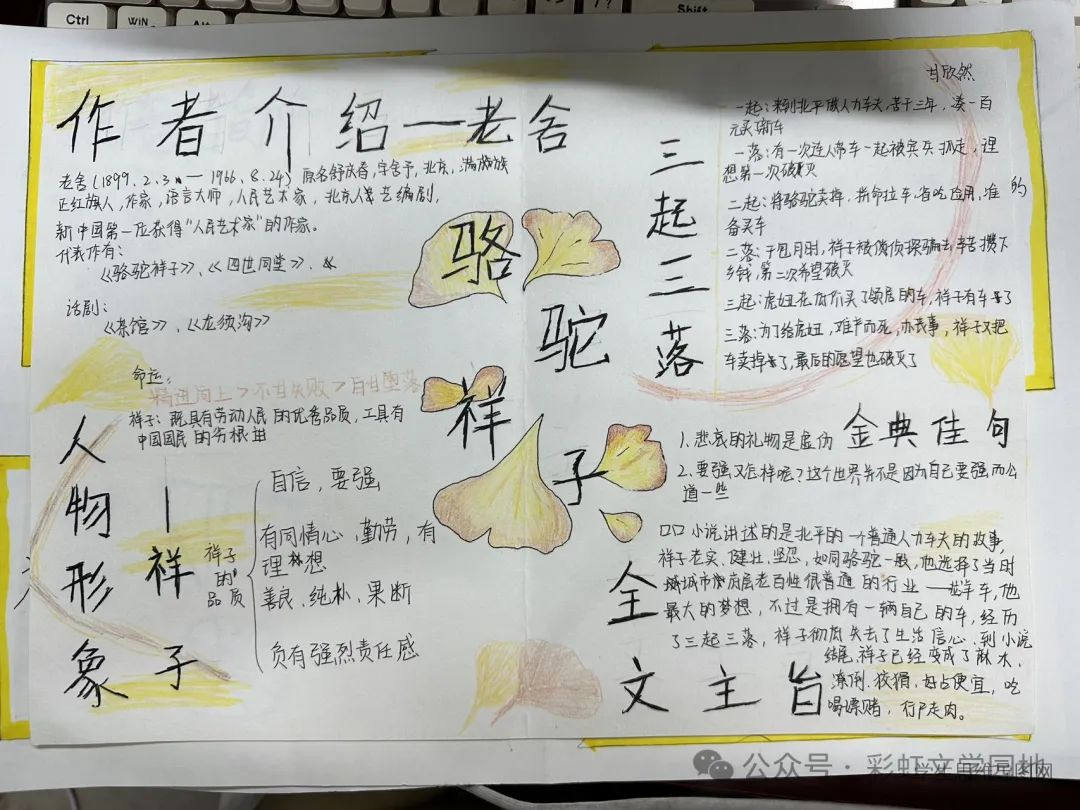 Ctrl
WiN
Alt
Shift
甘欣然
作者介绍—老舍
老舍(1899.2.3 — 1966.8.24) 原名舒庆春,字舍予,北京,满族
正红旗人,作家,语言大师,人民艺术家,北京人艺编剧,
新中国第一位获得“人民艺术家”的作家。
代表作有:
《骆驼祥子》、《四世同堂》、
话剧:
《茶馆》、《龙须沟》
骆驼祥子
三起三落
一起:来到北平做人力车夫,苦干三年,凑一百
元买新车
一落:有一次连人带车一起被宾兵抓走,理
想第一次破灭
二起:将骆驼卖掉,拚命拉车,省吃应用,准的
备买车
二落:干包月时,祥子被侦探骗去辛苦攒下
钱,第二次希望破灭
三起:虎妞花低价买了领居的车,祥子有车了
三落:为了给虎妞,难产而死,办丧事,祥子又把
车卖掉了,最后的愿望也破灭了
命运:
精进向上>不甘失败>自甘堕落
祥子:既具有劳动人民的优秀品质,工具有
中国国民的劣根
人物形象—祥子
祥子的品质
自信,要强
有同情心,勤劳,有
理想
善良、纯朴、果断
负有强烈责任感
金典佳句
1.悲哀的礼物是虚伪
2.要强又怎样呢?这个世界并不是因为自己要强而公
道一些
全文主旨
口口小说讲述的是北平的一个普通人力车夫的故事,
祥子老实、健壮、坚忍,如同骆驼一般,他选择了当时
城市底层老百姓很普通的行业——拉车,他
最大的梦想,不过是拥有一辆自己的车,经历
了三起三落,祥子彻底失去了生活信心,到小说
结尾,祥子已经变成了麻木、
潦倒、狡猾、好占便宜,吃
喝嫖赌,行尸走肉。
公众号·彩虹文学园地